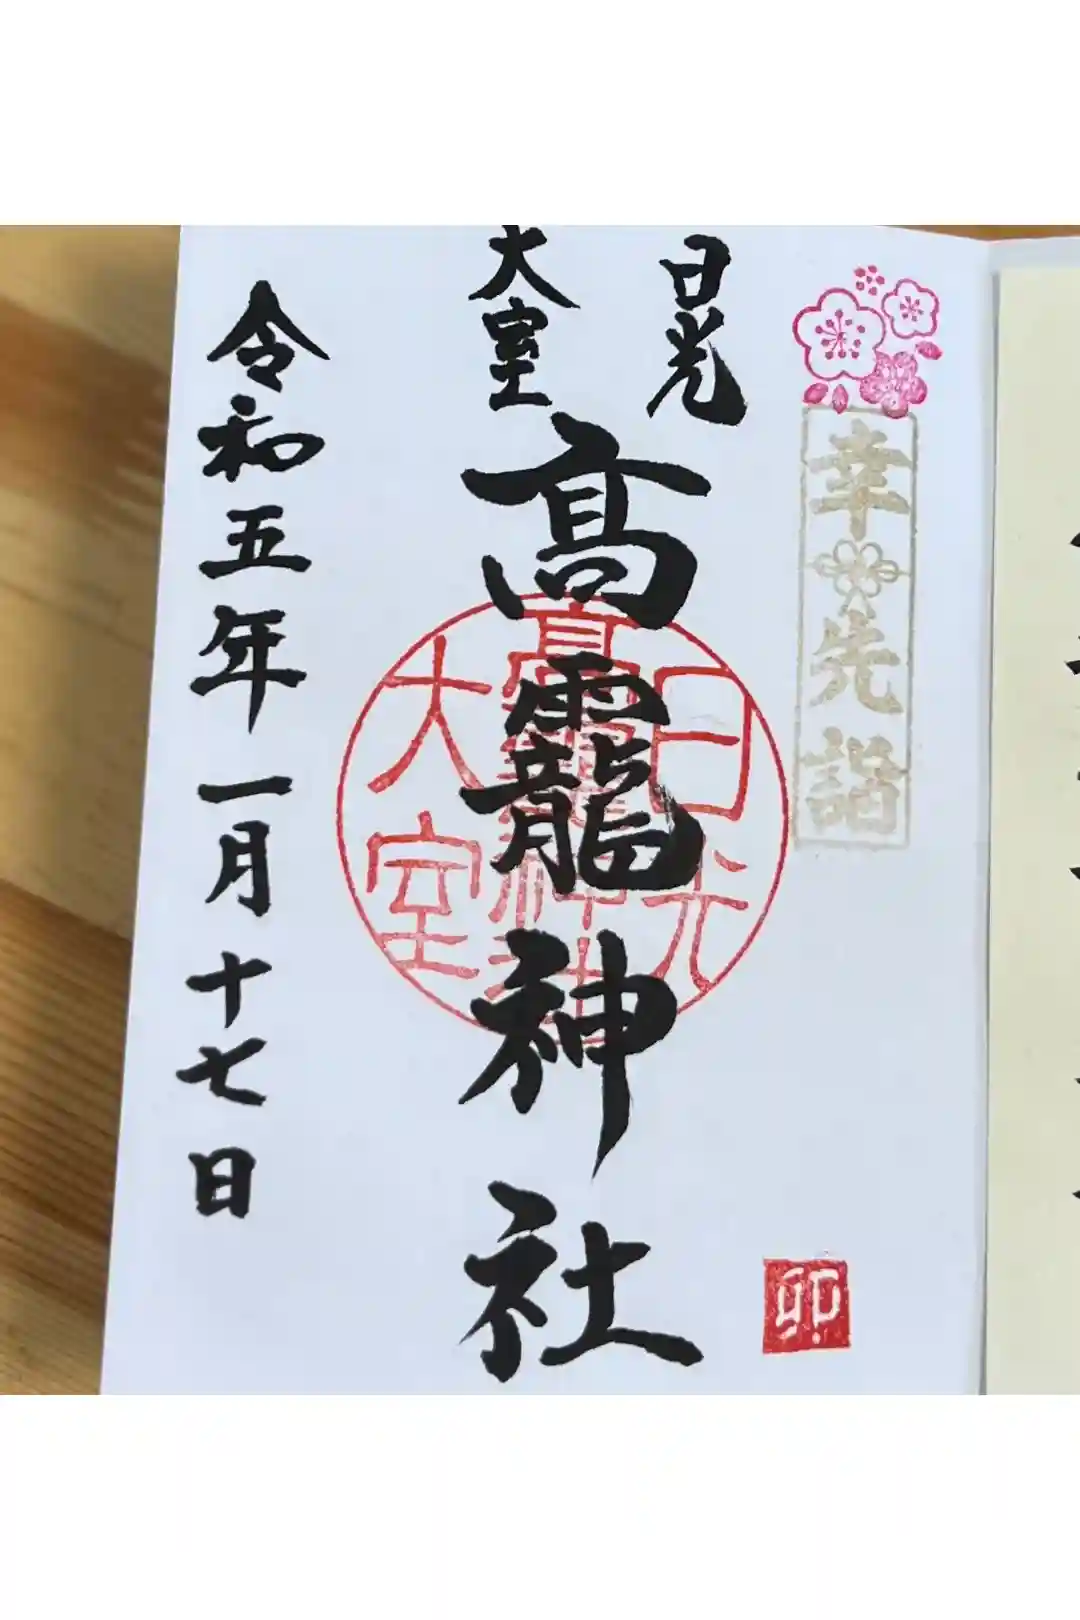 幸先詣
日光
大室
髙龗神社
令和五年一月十七日
日光
髙龗神社
大室
卯